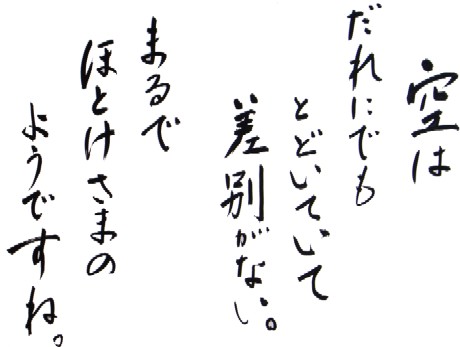 空は
だれにでも
とどいていて
差別がない。
まるで
ほとけさまの
ようですね。